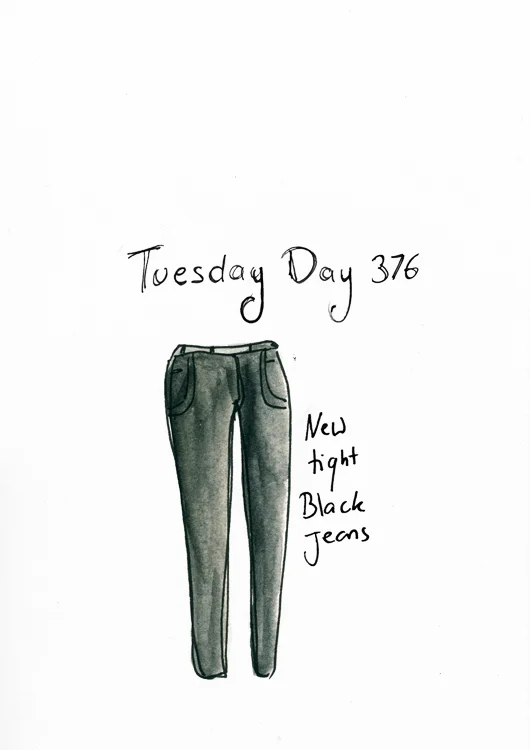 Tuesday Day 376
New
tight
Black
Jeans